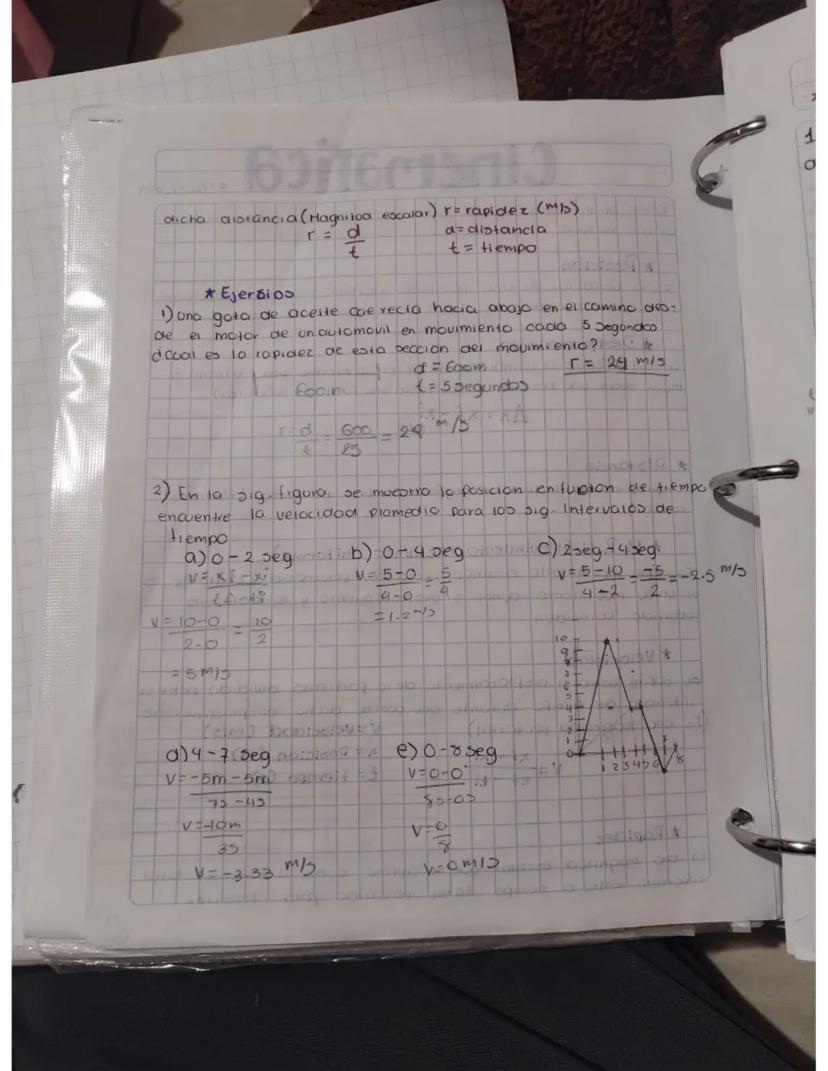 dicha distancia (Magnitud escalar) r = rapidez (m/s)
r = d/t
d = distancia
t = tiempo
* Ejersios
1) Una gota de aceite cae recia hacia abajo en el camino des-
de el motor de un automovil en movimiento cada 5 segundos
¿cual es la rapidez de esta seccion del movimiento?
d = 600m
r = 24 m/s
600m
t = 5 segundos
r = d/t = 600/25 = 24 m/s
2) En la sig. figura se muestra la posicion en fusion de tiempo
encuentre la velocidad promedio para los sig. Intervalos de
tiempo
a) 0 - 2 seg b) 0 - 4 seg c) 2seg - 4seg
v = xf - xi / tf - ti
v = 5-0 / 4-0 = 5/4
v = 5-10 / 4-2 = -5/2 = -2.5 m/s
= 1.2 m/s
v = 10-0 / 2-0 = 10/2
= 5 m/s
10
9
8
7
6
5
4
3
2
1
0
1 2 3 4 5 6 7 8
d) 4 - 7 seg e) 0 - 8 seg
v = -5m - 5m / 7s - 4s
v = 0-0 / 8s-0s
v = -10m / 3s
v = 0/8
v = -3.33 m/s
v = 0 m/s